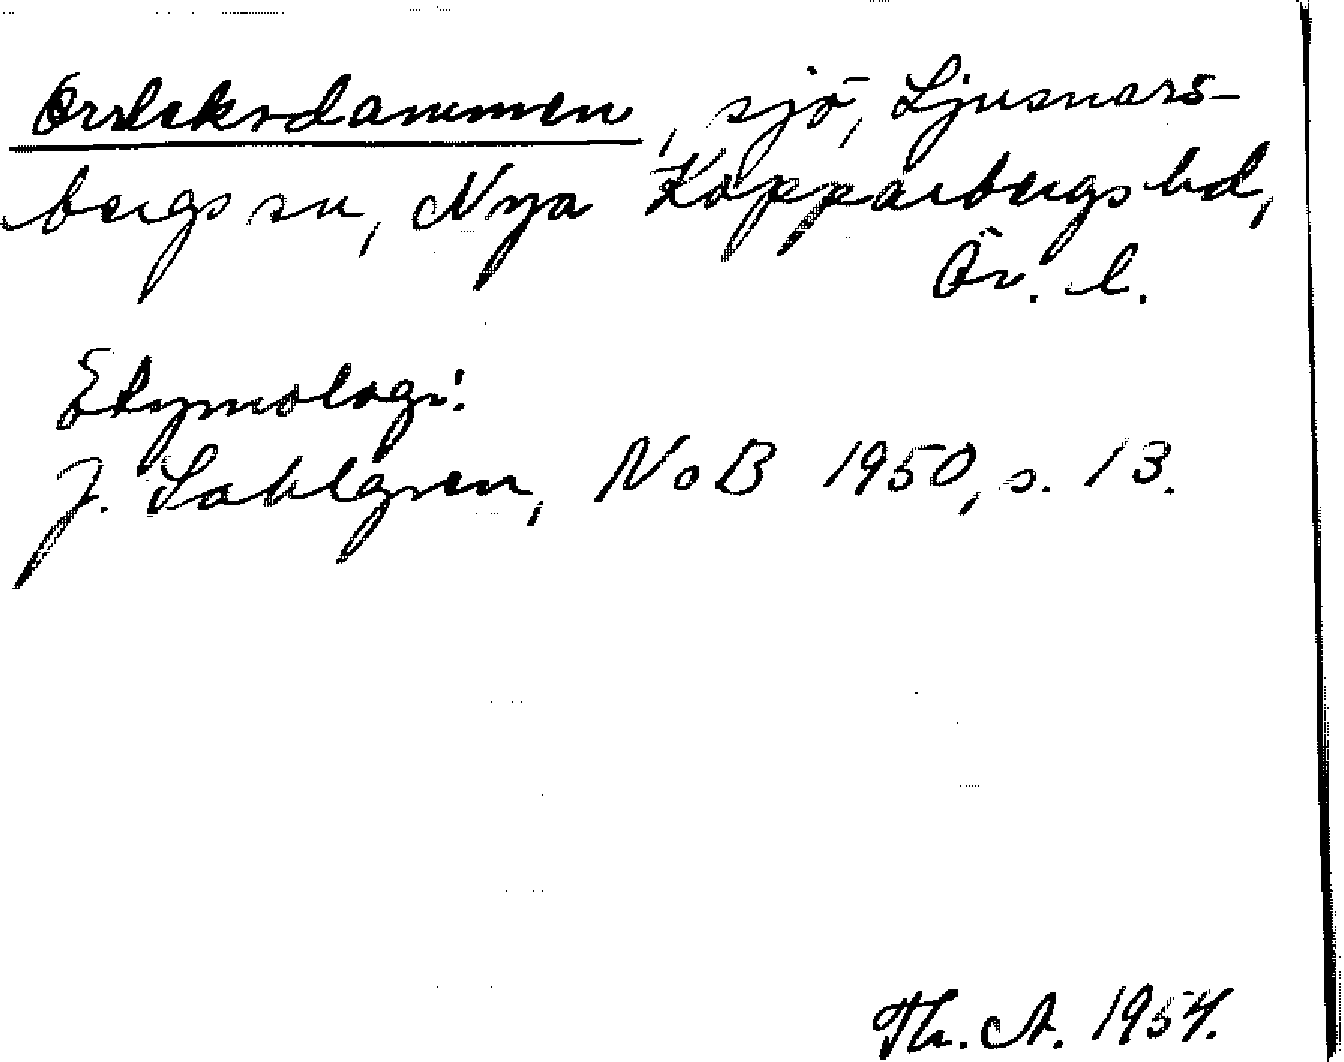 Orrleksdammen, sjö, Ljusnars-
bergs sn, Nya Kopparbergs bd,
Ör. l.
Etymologi:
J. Sahlgren, NoB 1950, s. 13.
Th. A. 1954.